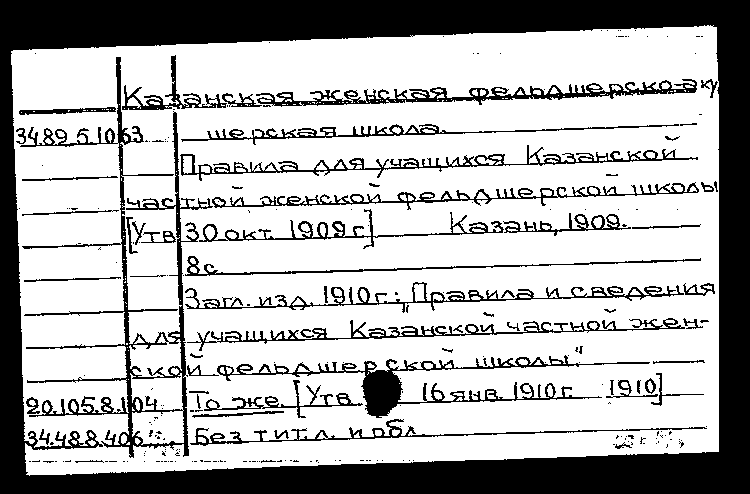 Казанская женская фельдшерско-аку
34.89.5.1063 шерская школа.
Правила для учащихся Казанской
частной женской фельдшерской школы
[Утв 30 окт. 1909 г] Казань, 1909.
8 с.
Загл. изд. 1910 г.: „Правила и сведения
для учащихся Казанской частной жен-
ской фельдшерской школы."
20.105.8.104 То же. [Утв. 16 янв. 1910 г. 1910]
34.48.8.406 Без тит. л. и обл.